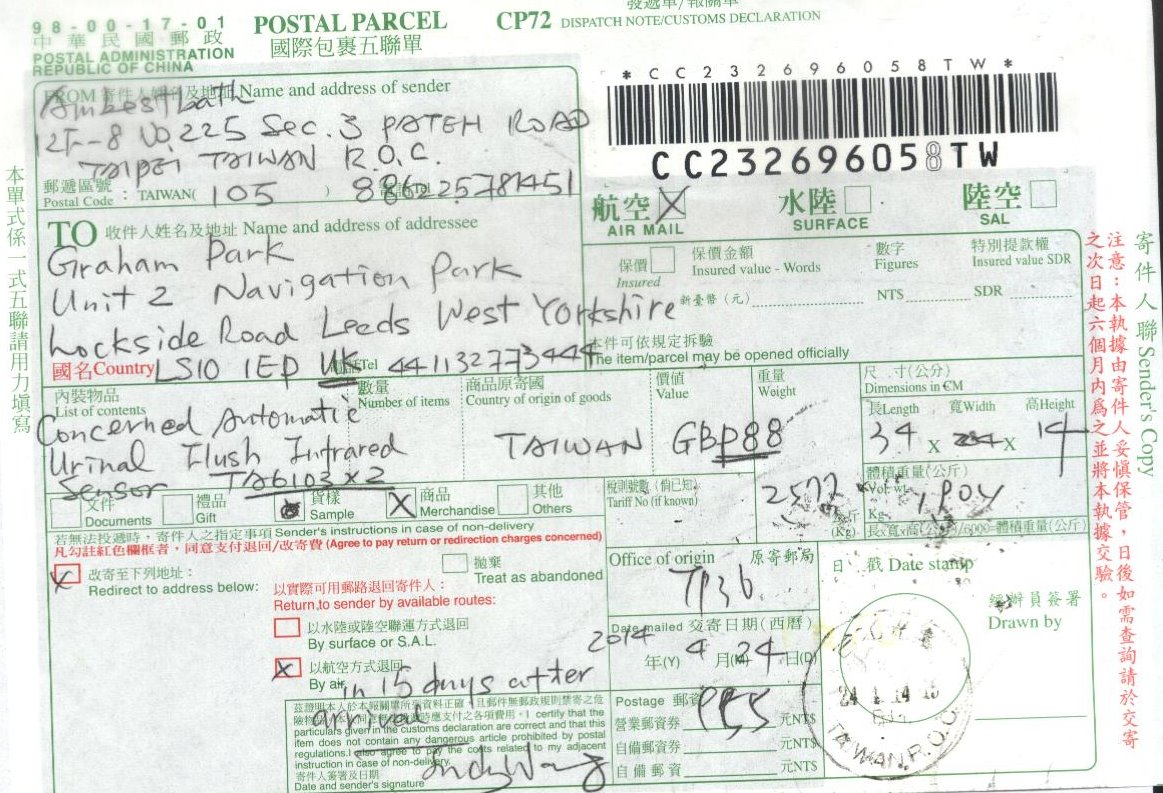 98-00-17-01
中華民國郵政
POSTAL ADMINISTRATION
REPUBLIC OF CHINA
POSTAL PARCEL
國際包裹五聯單
CP72
發遞單/報關單
DISPATCH NOTE/CUSTOMS DECLARATION
*CC232696058TW*
CC232696058TW
FROM 寄件人姓名及地址 Name and address of sender
Ambest bath
12F-8 NO,225 Sec.3 PATEH ROAD
TAIPEI TAIWAN R.O.C.
郵遞區號
Postal Code : TAIWAN( 105 ) 886225781451
航空 X
AIR MAIL
水陸
SURFACE
陸空
SAL
TO 收件人姓名及地址 Name and address of addressee
Graham Park
Unit 2 Navigation Park
Lockside Road Leeds West Yorkshire
國名Country LS10 1EP UK Tel 441132773444
保價
Insured
保價金額
Insured value - Words
數字
Figures
特別提款權
Insured value SDR
新臺幣 (元)
NT$
SDR
本件可依規定拆驗
The item/parcel may be opened officially
內裝物品
List of contents
數量
Number of items
商品原寄國
Country of origin of goods
價值
Value
重量
Weight
尺 寸(公分)
Dimensions in CM
長Length 寬Width 高Height
34 X X 14
Concerned Automatic
Urinal Flush Infrared
Sensor TA6103 x 2
TAIWAN
GBP88
體積重量(公斤)
Vol. wt.
Kg
(Kg)
長x寬x高(公分)/6000=體積重量(公斤)
稅則號數 (倘已知)
Tariff No (if known)
文件
Documents
禮品
Gift
貨樣
Sample
X 商品
Merchandise
其他
Others
若無法投遞時，寄件人之指定事項 Sender's instructions in case of non-delivery
凡勾註紅色欄框者，同意支付退回/改寄費 (Agree to pay return or redirection charges concerned)
X 改寄至下列地址：
Redirect to address below:
拋棄
Treat as abandoned
以實際可用郵路退回寄件人：
Return to sender by available routes:
以水陸或陸空聯運方式退回
By surface or S.A.L.
X 以航空方式退回
By air in 15 days after
arrival
I certify that the
particulars given in the customs declaration are correct and that this
item does not contain any dangerous article prohibited by postal
regulations.I also agree to pay the costs related to my adjacent
instruction in case of non-delivery.
寄件人簽署及日期
Date and sender's signature
Andy Wang
Office of origin 原寄郵局
Date mailed 交寄日期 (西曆)
2014 年(Y) 4 月(M) 24 日(D)
Postage 郵資
營業郵資券 元NT$
自備郵資券 元NT$
自備郵資 元NT$
日 戳 Date stamp
經辦員簽署
Drawn by
TAIWAN.R.O.C.
本單式係一式五聯請用力填寫
寄件人聯 Sender's Copy
注意：本執據由寄件人妥慎保管，日後如需查詢請於交寄
之次日起六個月內為之並將本執據交驗。